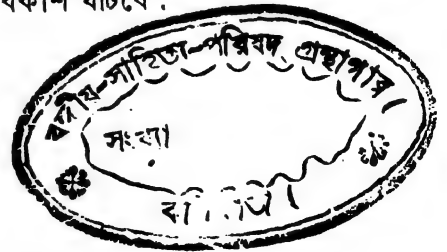 ঘটিবে।
বঙ্গীয়-সাহিত্য-পরিষদ গ্রন্থাগার
সংখ্যা